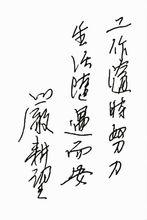 工作隨時努力
生活隨遇而安
嚴耕望